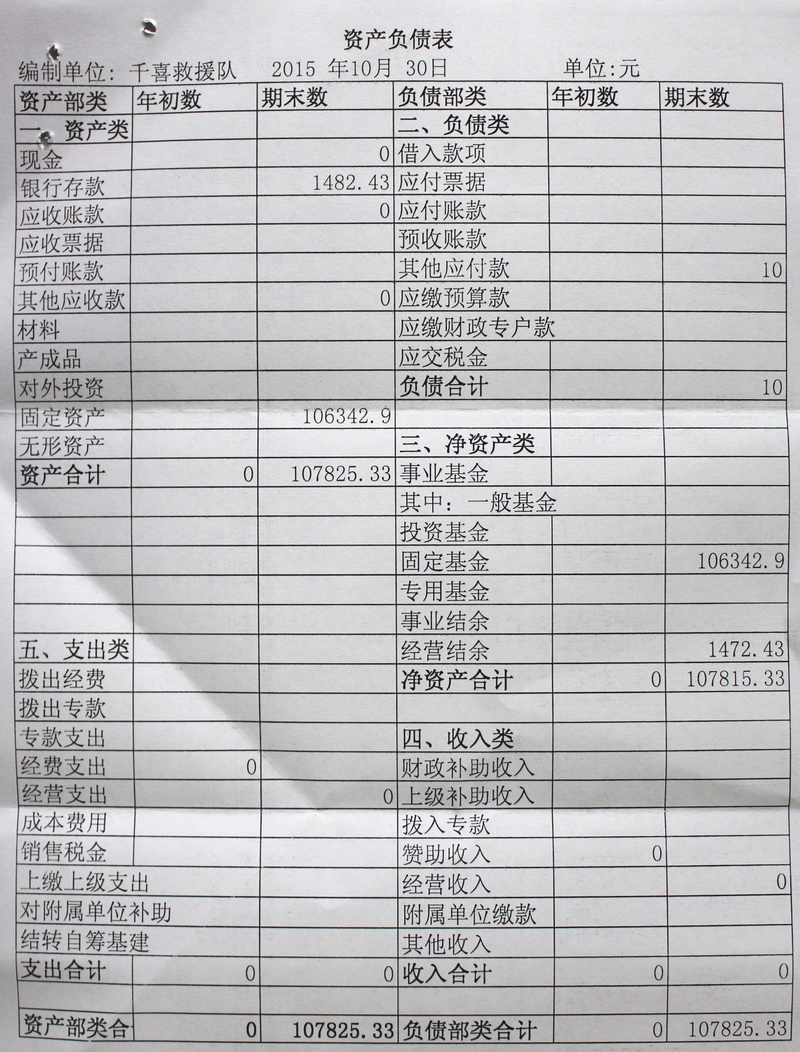 资产负债表
编制单位: 千喜救援队 2015 年10月 30日 单位:元
资产部类 年初数 期末数 负债部类 年初数 期末数
一、资产类 二、负债类
现金 0 借入款项
银行存款 1482.43 应付票据
应收账款 0 应付账款
应收票据 预收账款
预付账款 其他应付款 10
其他应收款 0 应缴预算款
材料 应缴财政专户款
产成品 应交税金
对外投资 负债合计 10
固定资产 106342.9
无形资产 三、净资产类
资产合计 0 107825.33 事业基金
其中: 一般基金
投资基金
固定基金 106342.9
专用基金
事业结余
五、支出类 经营结余 1472.43
拨出经费 净资产合计 0 107815.33
拨出专款
专款支出 四、收入类
经费支出 0 财政补助收入
经营支出 0 上级补助收入
成本费用 拨入专款
销售税金 赞助收入 0
上缴上级支出 经营收入 0
对附属单位补助 附属单位缴款
结转自筹基建 其他收入
支出合计 0 0 收入合计 0 0
资产部类合 0 107825.33 负债部类合计 0 107825.33